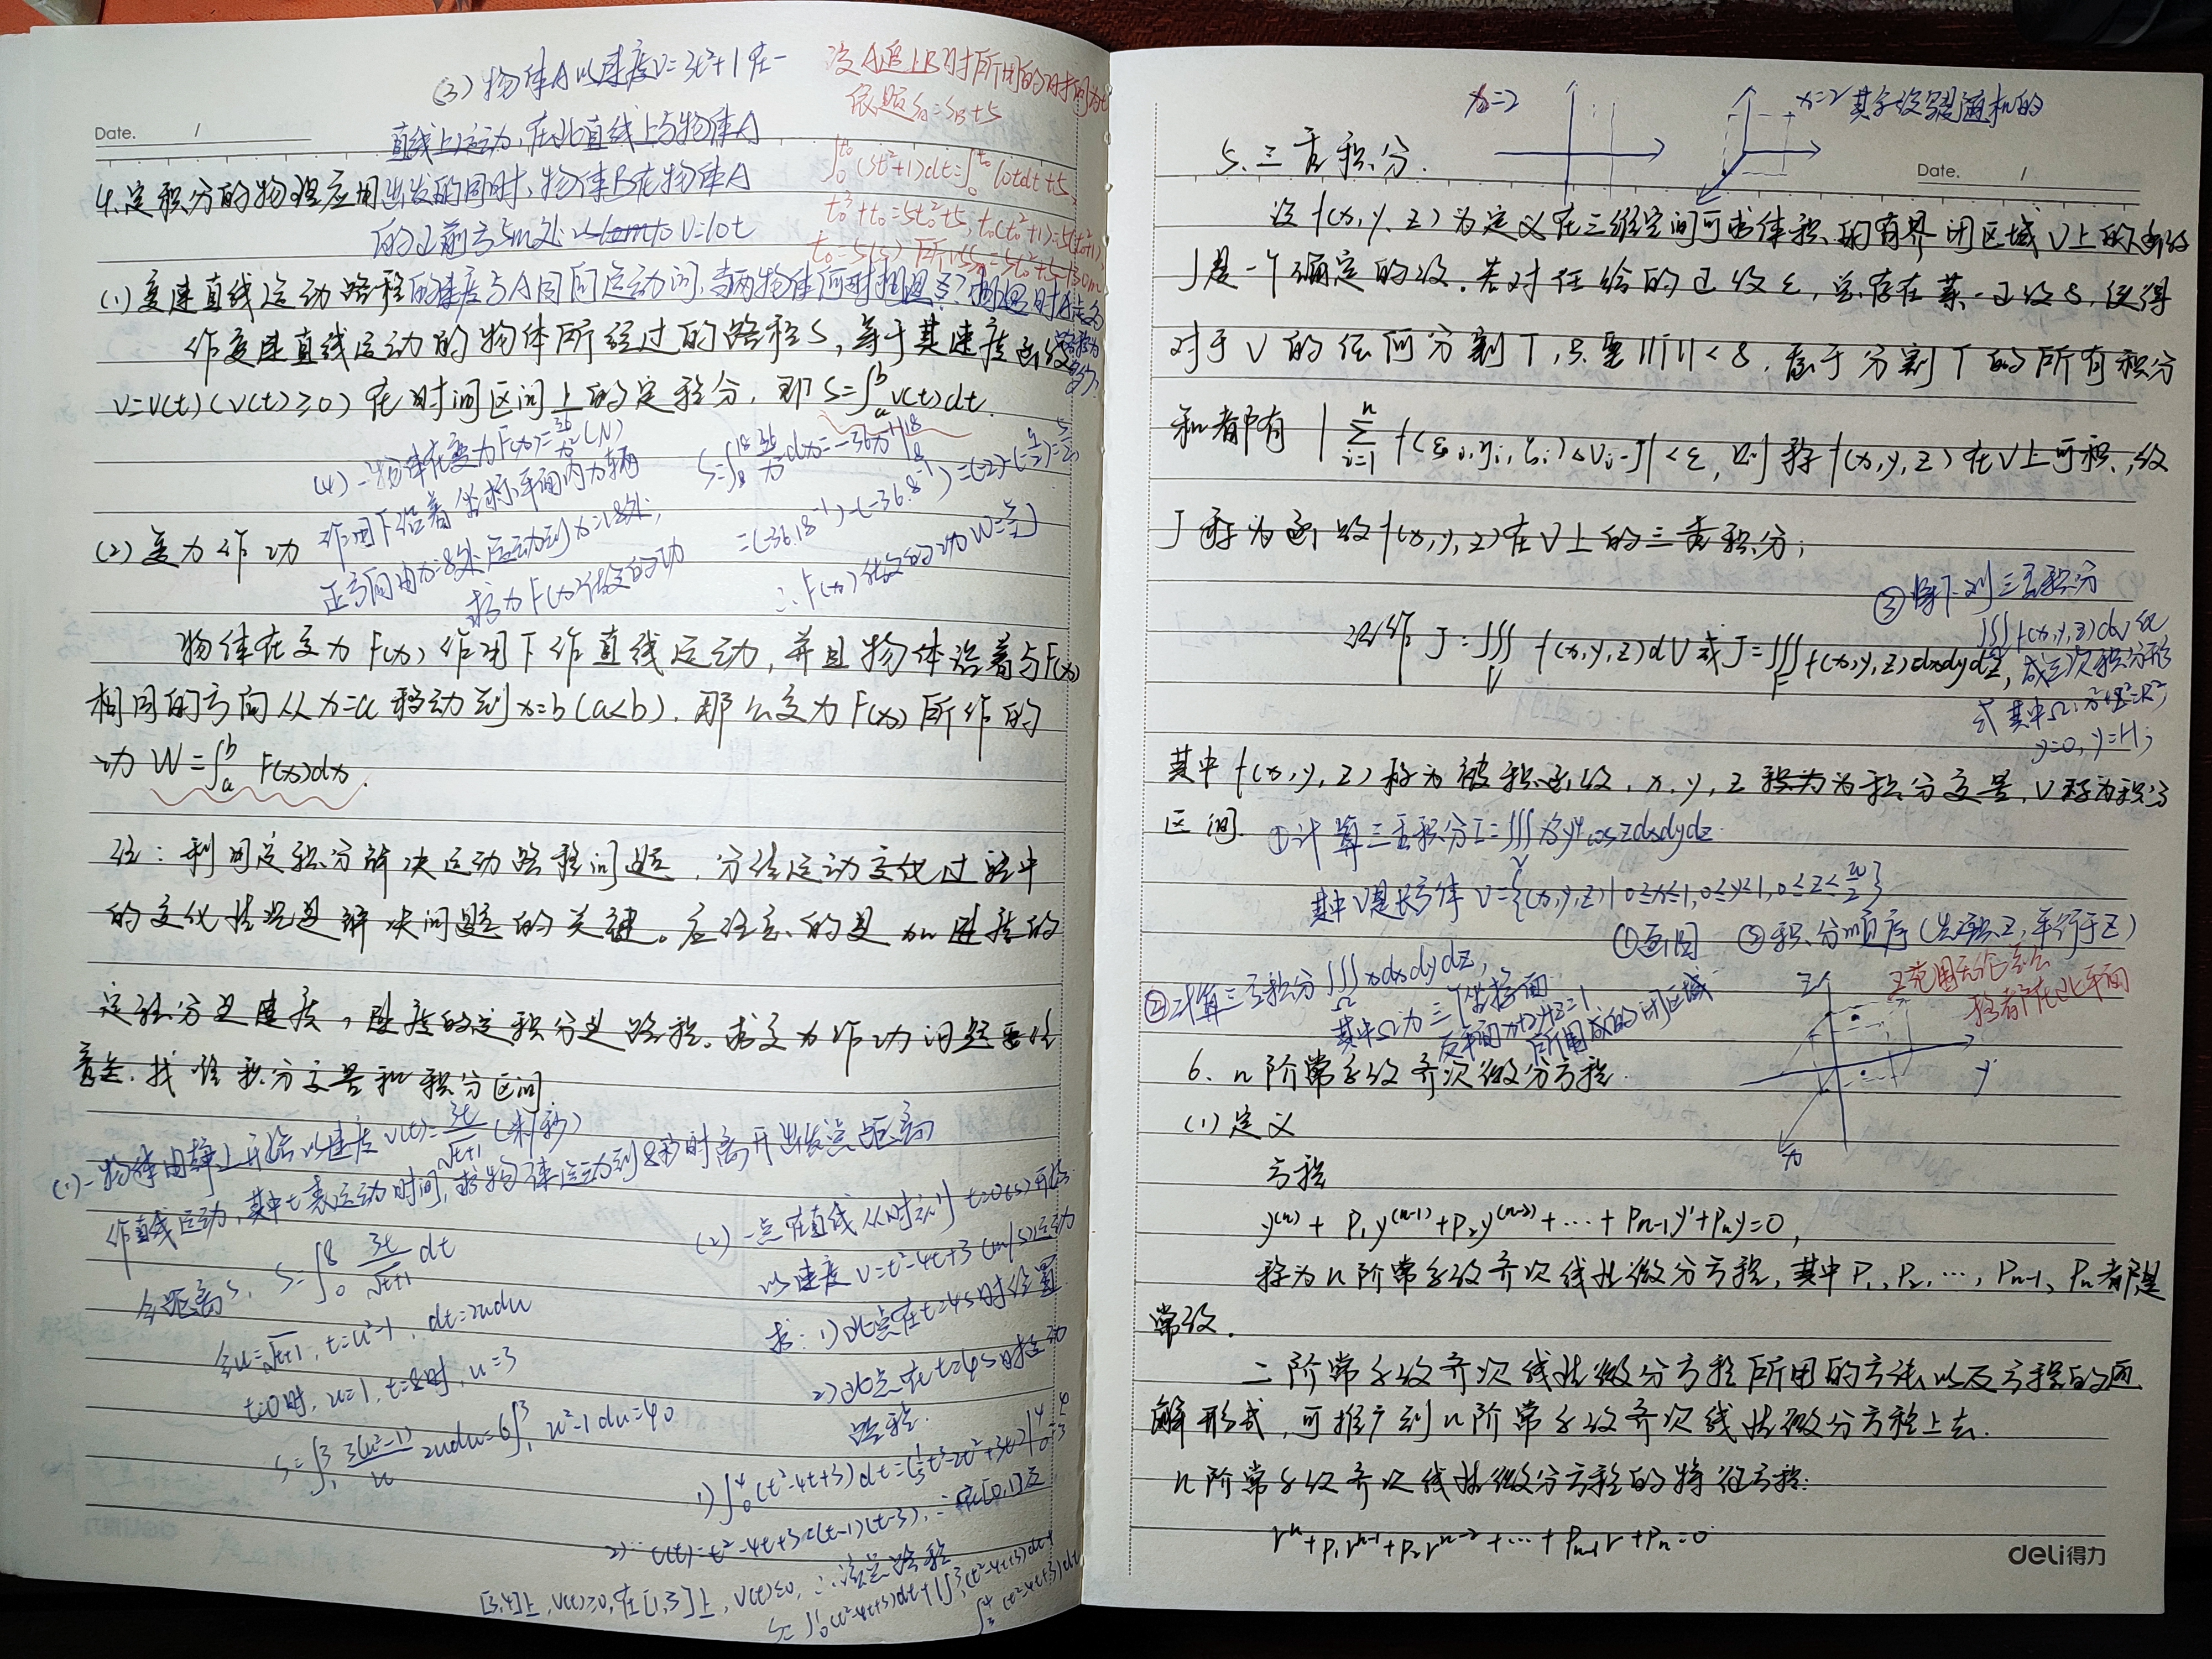 (3) 物体A以速度v=3t²+1在一
直线上运动,在此直线上与物体A
出发的同时,物体B在物体A
的正前方5m处以 v=10t
的速度与A同向运动问,当两物体何时相遇?相遇时
设A追上B时所用的时间为t₀
依题 Sa=Sb+5
∫₀^{t₀}(3t²+1)dt=∫₀^{t₀}10tdt+5
t₀³+t₀=5t₀²+5, t₀(t₀²+1)=5(t₀²+1)
t₀=5(s) 所以Sa=5t₀²+5=130m
Date. /
4.定积分的物理应用
(1)变速直线运动路程
作变速直线运动的物体所经过的路程S,等于其速度函数
v=v(t)(v(t)≥0)在时间区间上的定积分,即S=∫ₐᵇv(t)dt.
(4)一物体在变力F(x)=36/x²(N)
作用下沿着坐标平面内x轴
正方向由x=8处运动到x=18处,
求力F(x)做的功
S=∫₈¹⁸36/x²dx=-36x⁻¹|₈¹⁸
=(-36·18⁻¹)-(-36·8⁻¹)=(-2)-(-9/2)=5/2
∴F(x)做的功W=5/2J
(2)变力作功
物体在变力F(x)作用下作直线运动,并且物体沿着与F(x)
相同的方向从x=a移动到x=b(a<b),那么变力F(x)所作的
功W=∫ₐᵇF(x)dx.
注:利用定积分解决运动路程问题,分清运动变化过程中
的变化情况是解决问题的关键。应注意的是加速度的
定积分是速度,速度的定积分是路程。求变力作功问题要注
意,找准积分变量和积分区间
(1)一物体由静止开始以速度v(t)=3t/√(t+1)(米/秒)
作直线运动,其中t表运动时间,求物体运动到8秒时离开出发点距离
令距离S, S=∫₀⁸3t/√(t+1)dt
令u=√(t+1), t=u²-1, dt=2udu
t=0时,u=1,t=8时,u=3
S=∫₁³3(u²-1)/u 2udu=6∫₁³u²-1du=40
(2)一点在直线从时刻t=0(s)开始
以速度v=t²-4t+3(m/s)运动
求:1)此点在t=4s时位置
2)此点在t=4s时
路程.
1)∫₀⁴(t²-4t+3)dt=(1/3t³-2t²+3t)|₀⁴=4/3
2)∵v(t)=t²-4t+3=(t-1)(t-3),∴在[0,1]及
[3,4]上,v(t)≥0,在[1,3]上,v(t)≤0,∴该点路程
S=∫₀¹(t²-4t+3)dt+|∫₁³(t²-4t+3)dt|+
∫₃⁴(t²-4t+3)dt
x=2
x=2 其字数是随机的
5.三重积分.
Date. /
设f(x,y,z)为定义在三维空间可求体积的有界闭区域V上的函数
J是一个确定的数.若对任给的正数ε,总存在某一正数δ,使得
对于V的任何分割T,只要||T||<δ,属于分割T的所有积分
和都有|∑ᵢ₌₁ⁿf(ξᵢ,ηᵢ,ζᵢ)ΔVᵢ-J|<ε,则称f(x,y,z)在V上可积,数
J称为函数f(x,y,z)在V上的三重积分;
记作 J=∭_V f(x,y,z)dV或J=∭_V f(x,y,z)dxdydz,
③将下列三重积分
∭f(x,y,z)dv化
成三次积分形
式 其中Ω:x²+z²=R²,
y=0,y=H;
其中f(x,y,z)称为被积函数,x,y,z积为为积分变量,V称为积分
区间.
①计算三重积分I=∭_V x³y⁴cosZdxdydz
其中V是长方体V={(x,y,z)|0≤x≤1,0≤y≤1,0≤z≤π/2}
①画图 ②积分顺序(先积Z,平行于Z)
Z范围
②计算三重积分∭_Ω xdxdydz,
其中Ω为三个坐标面
及平面x+2y+z=1
所围成的闭区域
z
y
x
6.n阶常系数齐次微分方程.
(1)定义
方程
y⁽ⁿ⁾+P₁y⁽ⁿ⁻¹⁾+P₂y⁽ⁿ⁻²⁾+…+Pₙ₋₁y'+Pₙy=0,
称为n阶常系数齐次线性微分方程,其中P₁、P₂、…,Pₙ₋₁、Pₙ都是
常数.
二阶常系数齐次线性微分方程所用的方法以及方程的通
解形式,可推广到n阶常系数齐次线性微分方程上去.
n阶常系数齐次线性微分方程的特征方程:
rⁿ+P₁rⁿ⁻¹+P₂rⁿ⁻²+…+Pₙ₋₁r+Pₙ=0
deli得力